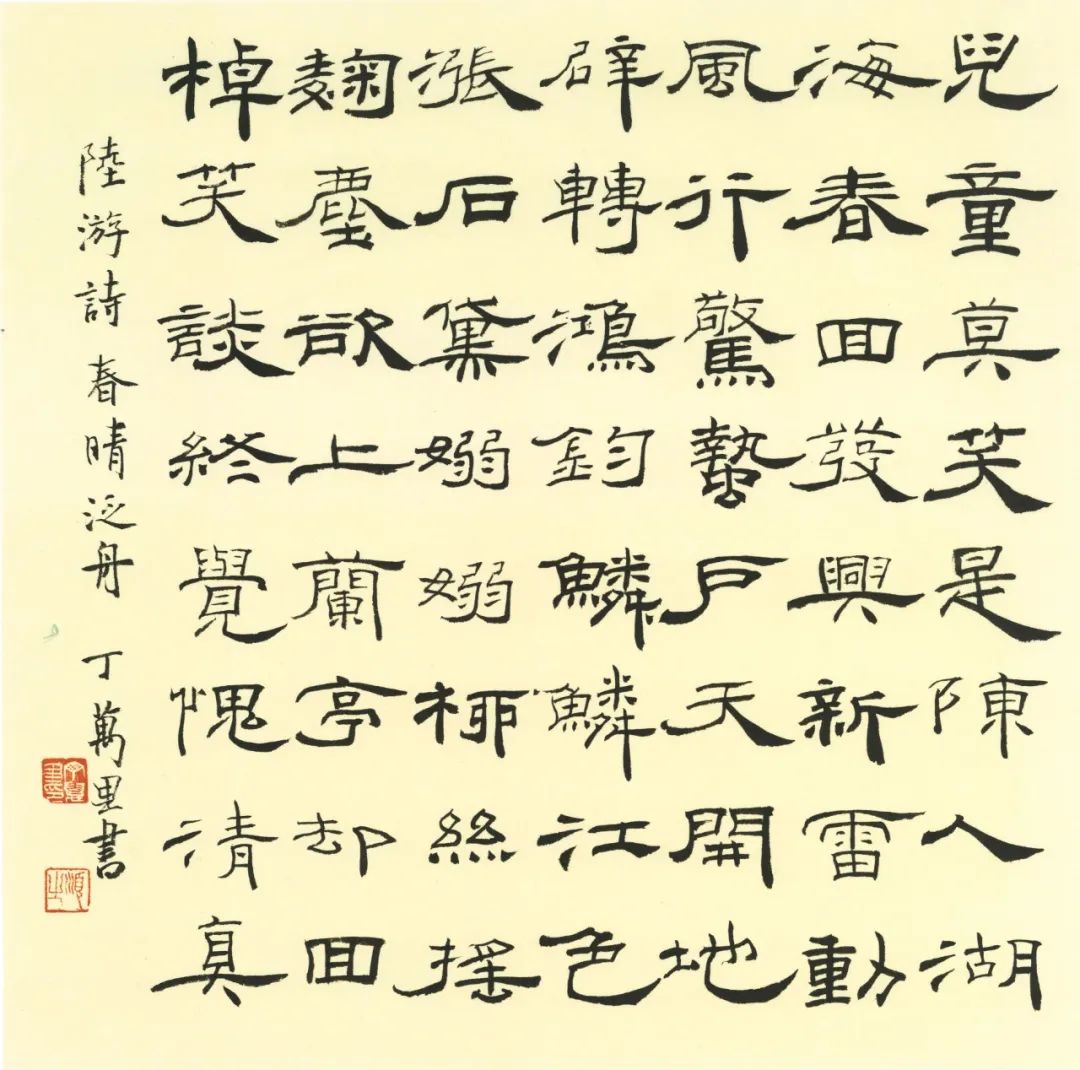 兒童莫笑是陳人湖
海春回發興新雷動
風行驚蟄戶天開地
辟轉鴻鈞鱗鱗江色
漲石黛嫋嫋柳絲搖
麴塵欲上蘭亭却回
棹笑談終覺愧清真
陸游詩春晴泛舟 丁萬里書